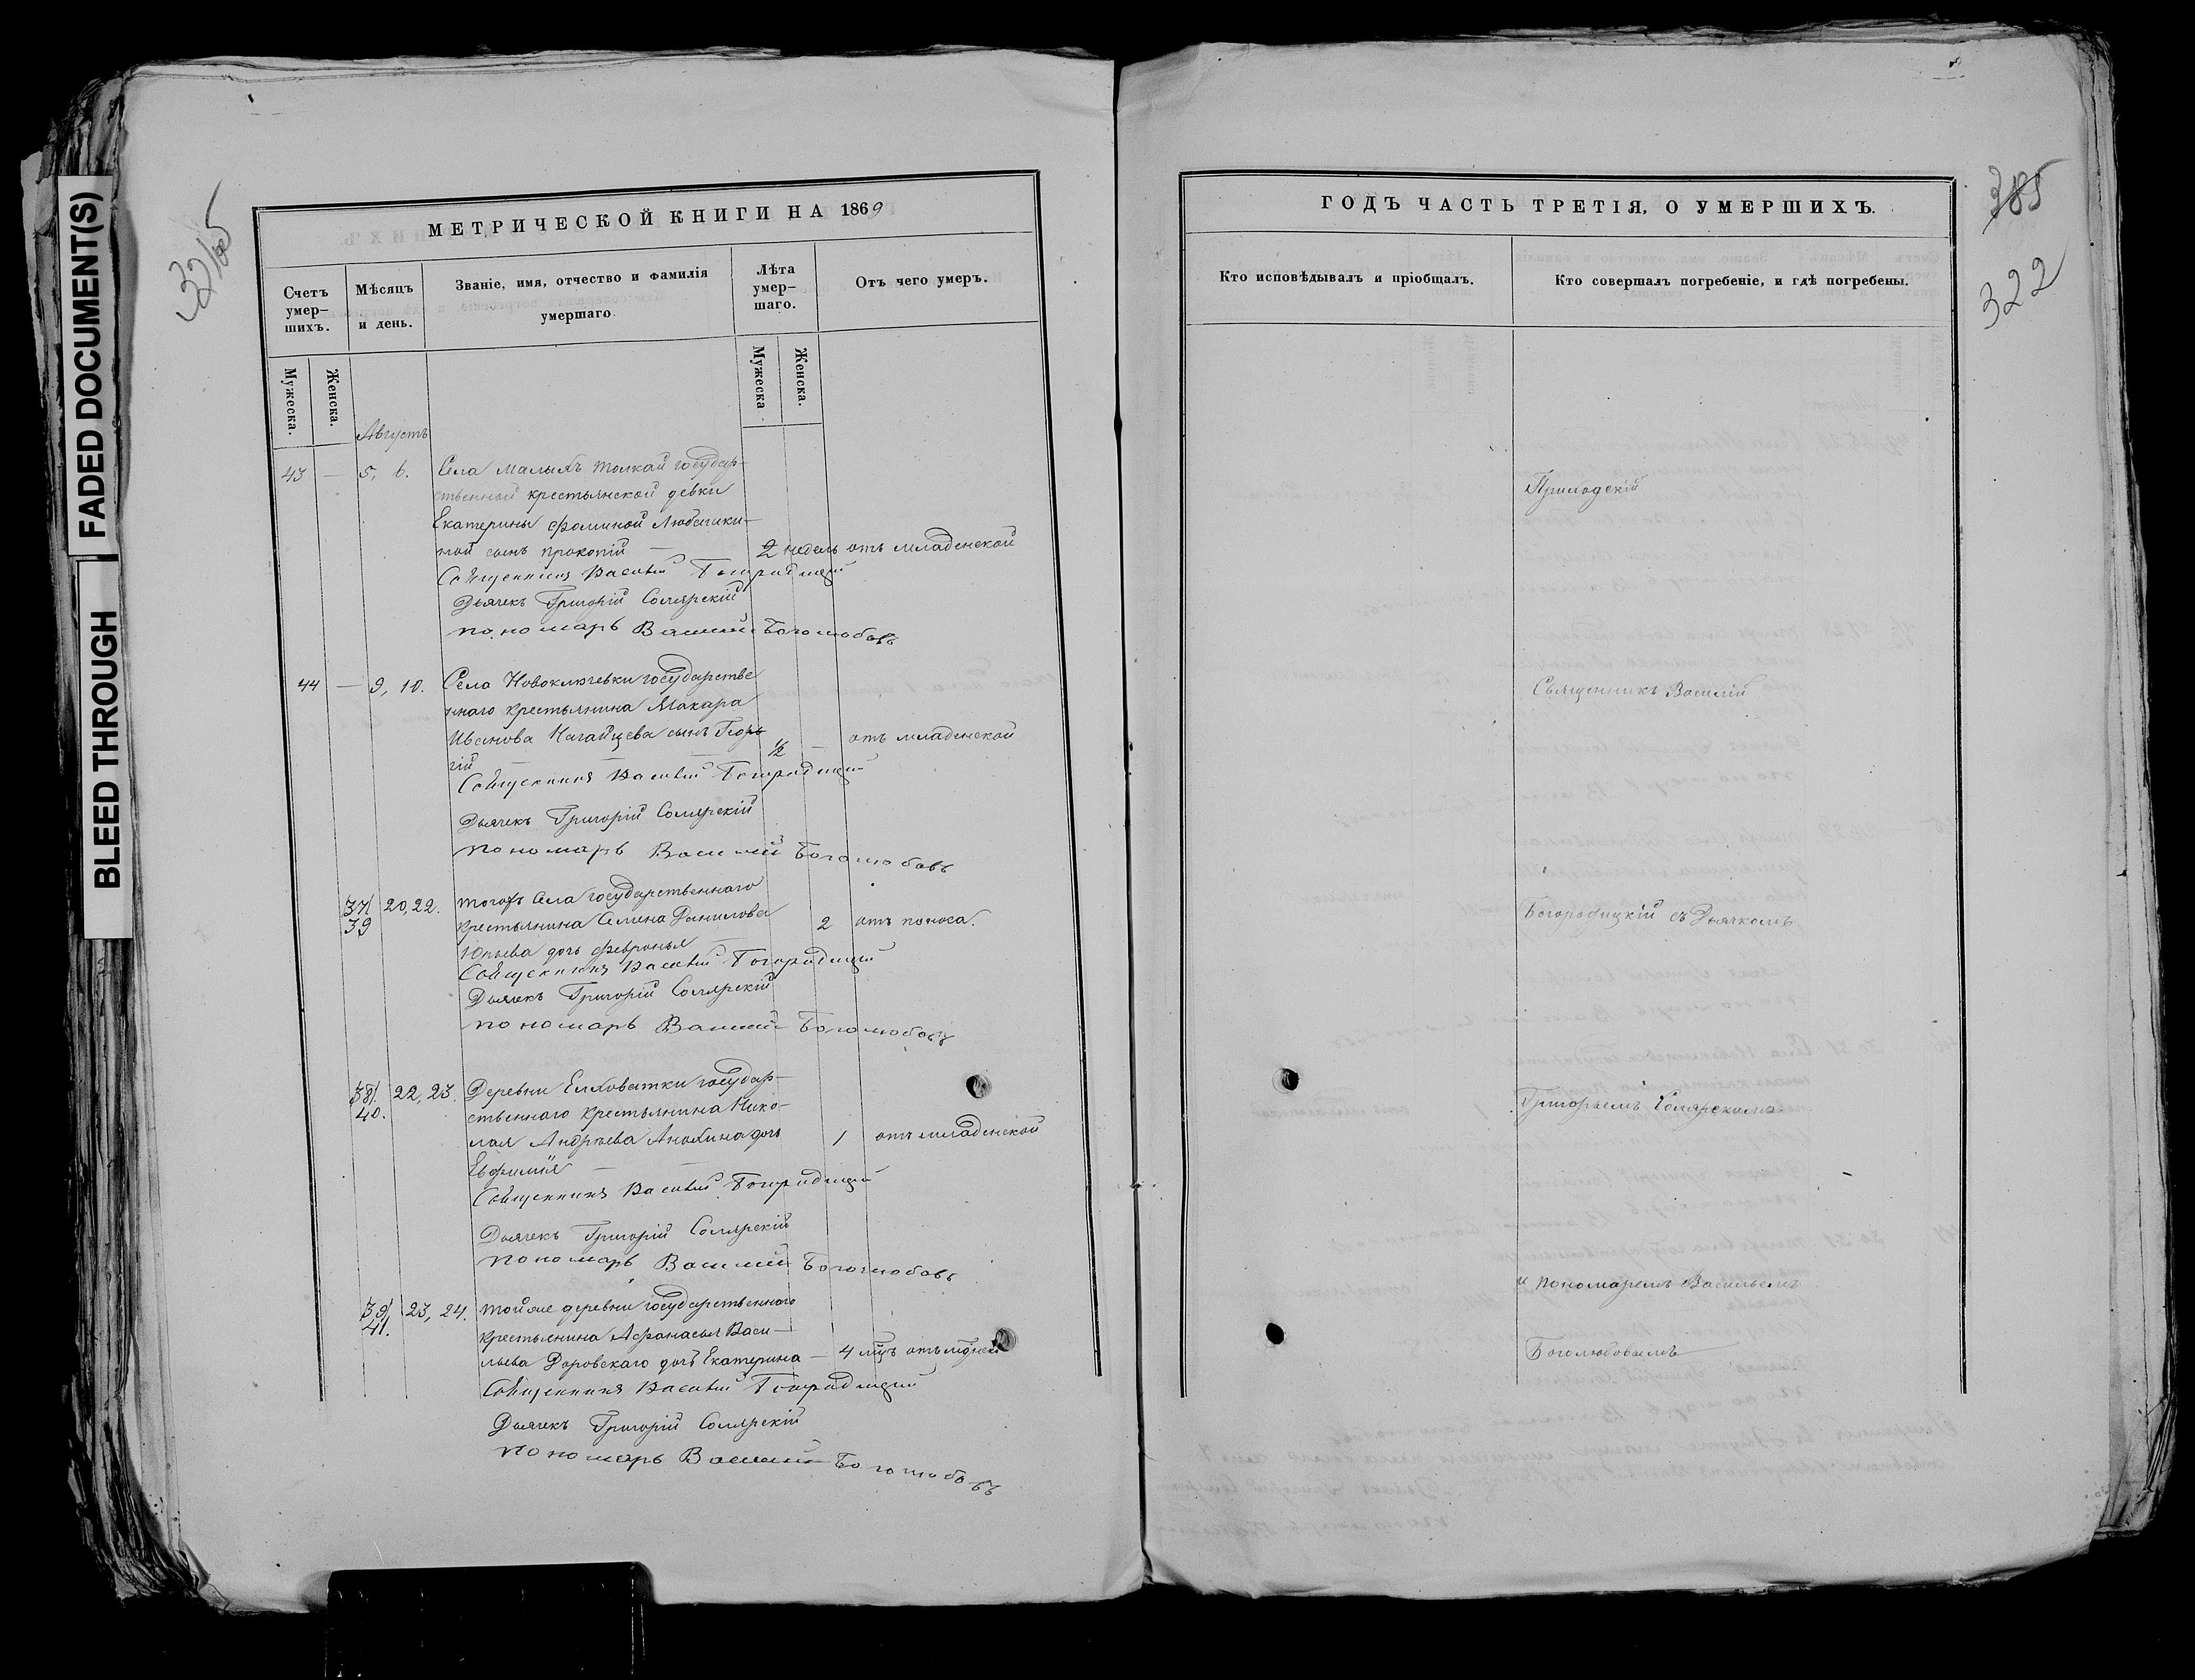 FADED DOCUMENT(S)
BLEED THROUGH
МЕТРИЧЕСКОЙ КНИГИ НА 1869
Счетъ умер-шихъ.
Мѣсяцъ и день.
Званіе, имя, отчество и фамилія умершаго.
Лѣта умер-шаго.
Отъ чего умеръ.
Мужеска.
Женска.
Мужеска.
Женска.
Августъ
43 — 5, 6. Села Малыхъ Толкай государ-
ственной крестьянской девки
Екатерины Фоминой
ной сынъ Прокопій — 2 недель отъ младенской
Священникъ Василій Богородицкій
Дьячекъ Григорій Солярскій
пономарь Василий Боголюбовъ
44 — 9, 10. Села Новоключевки государстве
ннаго крестьянина Макара
Иванова Нагайцева сынъ Геор
гій — — — 1/2 — отъ младенской
Священникъ Василій Богородицкій
Дьячекъ Григорій Солярскій
пономарь Василий Боголюбовъ
37/39 20, 22. тогожъ села государственнаго
крестьянина Семена Данилова 2 отъ поноса.
Юрьева дочь Февронья
Священникъ Василій Богородицкій
Дьячекъ Григорій Солярскій
пономарь Василий Боголюбовъ
38/40. 22, 23. Деревни Елховатки государ-
ственнаго крестьянина Нико-
лая Андреева Анохина дочь 1 отъ младенской
Евфимія — —
Священникъ Василій Богородицкій
Дьячекъ Григорій Солярскій
пономарь Василий Боголюбовъ
39/41. 23, 24. тойже деревни государственнаго
крестьянина Афанасья Васи-
льева Доровскаго дочь Екатерина — 4 мцъ отъ
Священникъ Василій Богородицкій
Дьячекъ Григорій Солярскій
пономарь Василий Боголюбовъ
ГОДЪ ЧАСТЬ ТРЕТІЯ, О УМЕРШИХЪ.
385
322
Кто исповѣдывалъ и пріобщалъ.
Кто совершалъ погребеніе, и гдѣ погребены.
Приходскій
Священникъ Василій
Богородицкій съ Дьячкомъ
Григорьемъ Солярскимъ
и пономаремъ Васильемъ
Боголюбовымъ